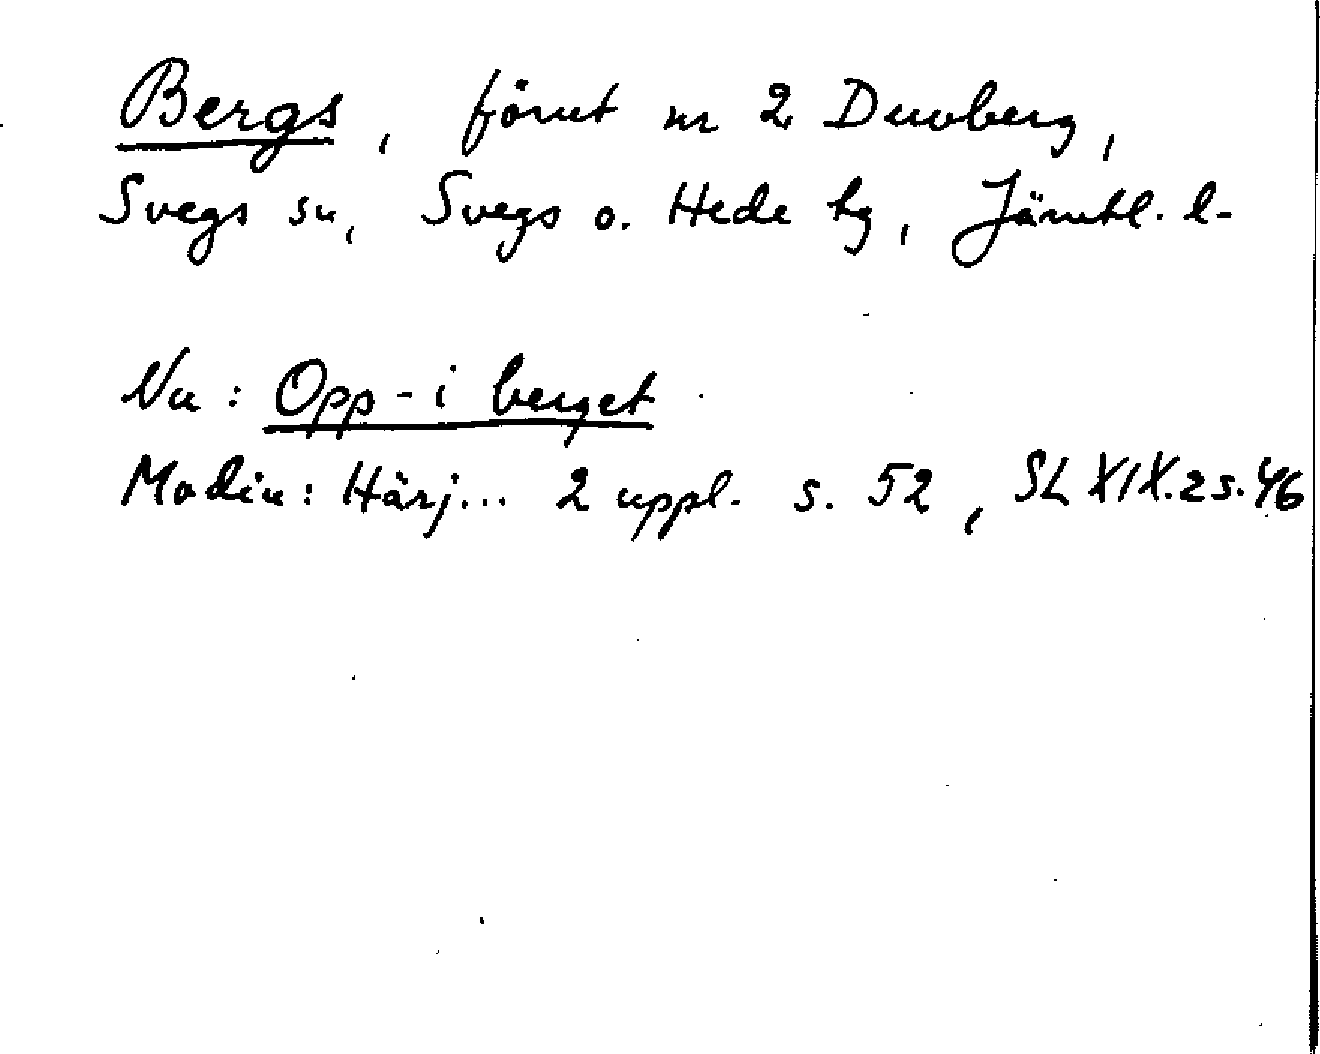 Bergs, förut nr 2 Duvberg,
Svegs sn, Svegs o. Hede tg, Jämtl. l.
Nu: Opp-i berget
Modin: Härj... 2 uppl. s. 52, SL XIX.2 s. 46